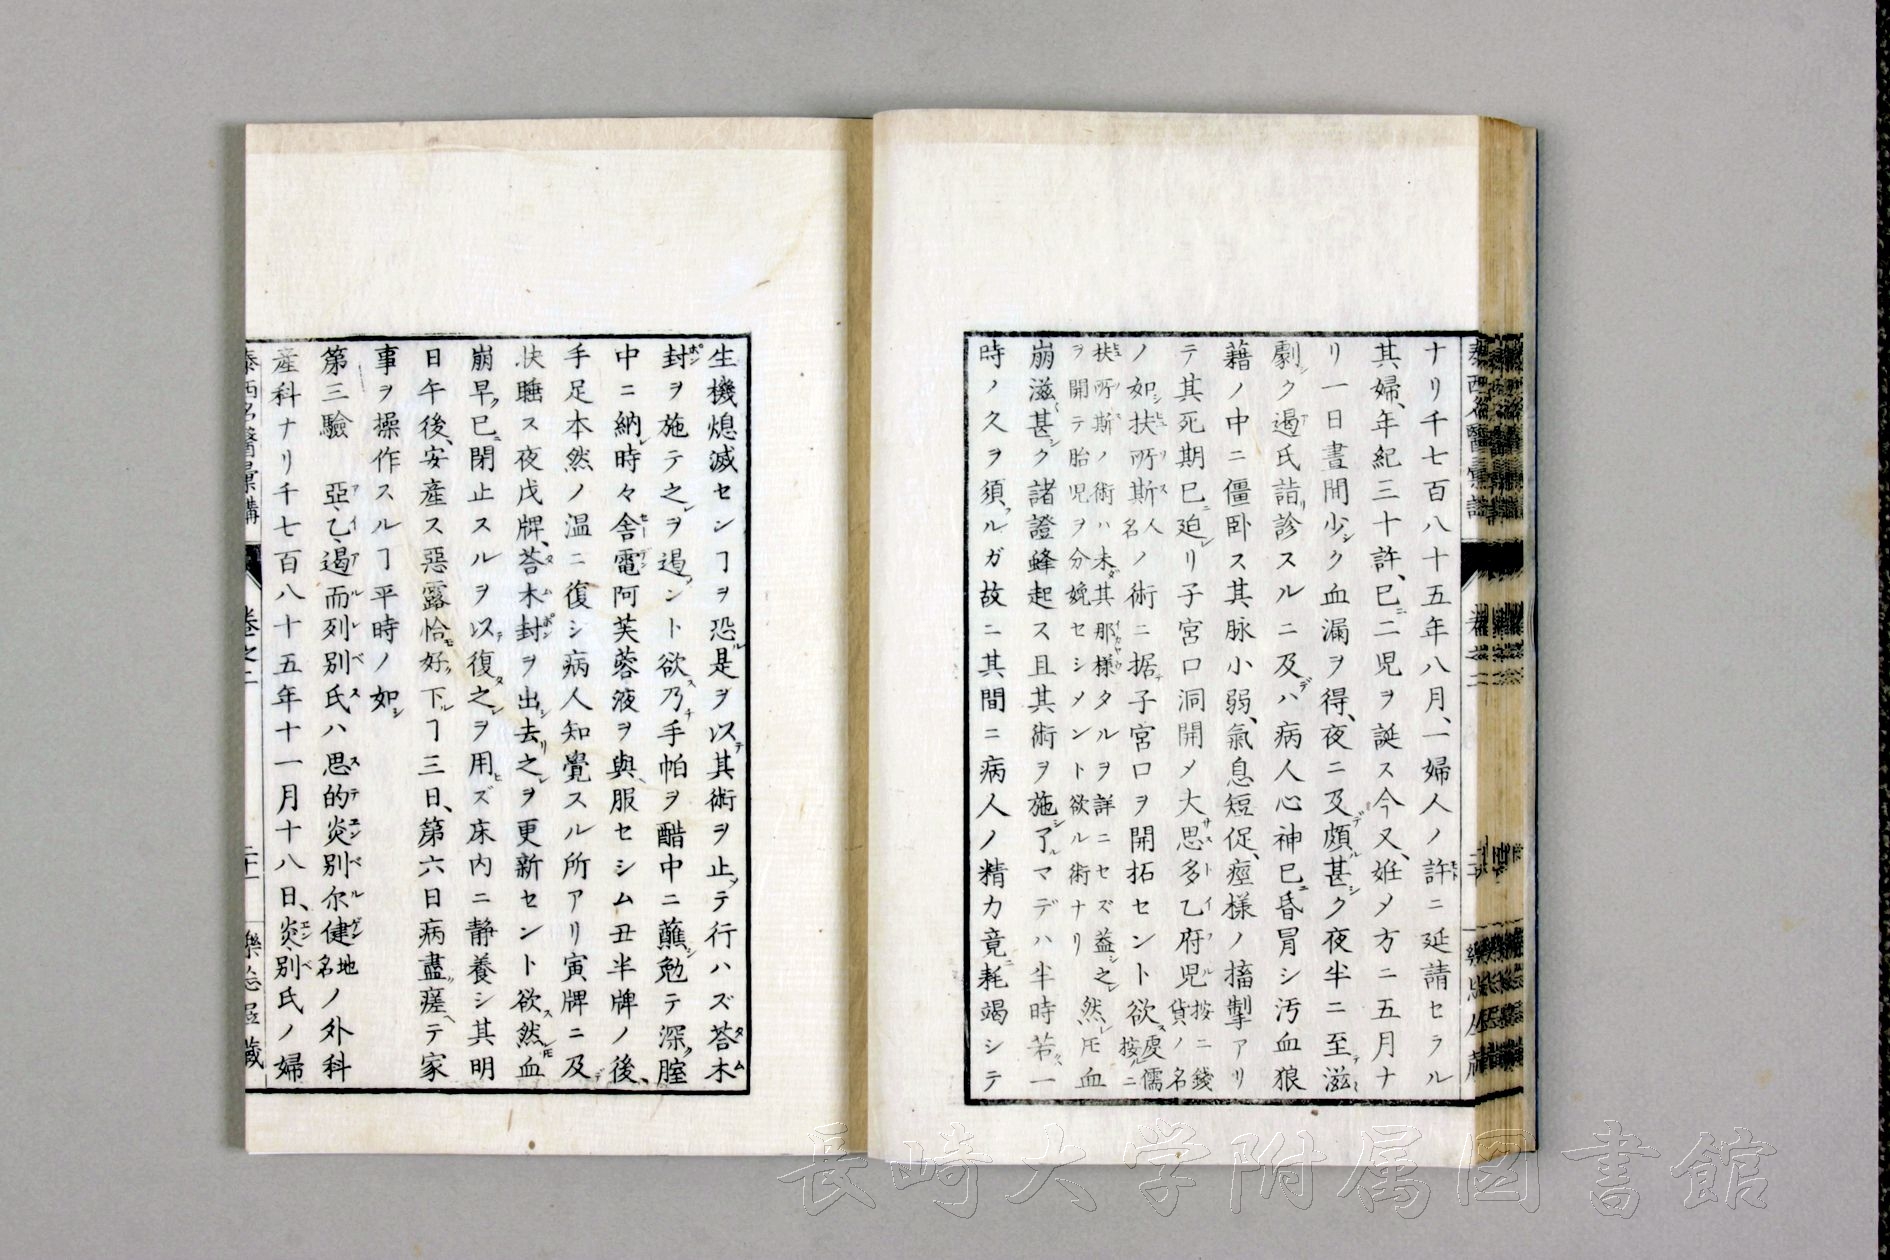 ナリ千七百八十五年八月、一婦人ノ許ニ延請セラル
其婦、年紀三十許、已ニ二児ヲ誕ス今又、姙メ方ニ五月ナ
リ一日晝間少シク血漏ヲ得、夜ニ及デ頗ル甚シク夜半ニ至テ滋
劇シク遏氏詣リ診スルニ及デハ病人心神已ニ昏冐シ汚血狼
藉ノ中ニ僵卧ス其脉小弱、氣息短促、痙様ノ搐掣アリ
テ其死期已ニ迫レリ子宮口洞開メ大思多乙府児按ニ錢貨ノ名
ノ如シ扶所斯人名ノ術ニ据テ子宮口ヲ開拓セント欲ス虔儒按ルニ
扶所斯ノ術ハ未ダ其那様タルヲ詳ニセズ蓋シ之レ
ヲ開テ胎児ヲ分娩セシメント欲ル術ナリ 然レ𪜈血
崩滋甚シク諸證蜂起ス且其術ヲ施シ了ルマデハ半時若クハ一
時ノ久ヲ須フルガ故ニ其間ニ病人ノ精力竟ニ耗竭シテ
生機熄滅センヿヲ恐ル是ヲ以テ其術ヲ止メテ行ハズ荅木
封ヲ施テ之レヲ遏メント欲ス乃チ手帕ヲ醋中ニ蘸シ勉テ深ク腟
中ニ納レ時々舎電阿芙蓉液ヲ與ヘ服セシム丑半牌ノ後、
手足本然ノ温ニ復シ病人知覺スル所アリ寅牌ニ及デ
快睡ス夜戌牌、荅木封ヲ出シ去リ之レヲ更新セント欲ス然レ𪜈血
崩早ク已ニ閉止スルヲ以テ復タ之レヲ用ヒズ床内ニ静養シ其明
日午後、安産ス惡露恰モ好ク下ルヿ三日、第六日病盡ク瘥ヘテ家
事ヲ操作スルヿ平時ノ如シ
第三驗 亞乙遏而列別氏ハ思的炎別尓健地名ノ外科
産科ナリ千七百八十五年十一月十八日、炎別氏ノ婦
泰西名醫彙講 卷之二 二十一